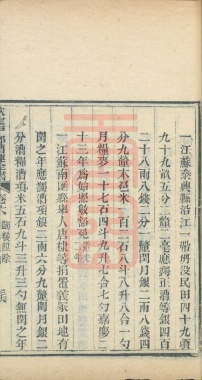 一江蘇泰興縣沿江一帶坍沒民田四十九頃
九十九畝五分二釐二毫應蠲正漕等銀四百
二十八兩八錢二分一釐閏月銀二兩八錢四
分九釐本色米一百二石八斗八升八合一勺
月糧麥一十七石四斗九升七合七勺嘉慶二
十三年為始照數豁免
一江蘇南匯縣
人唐棣等捐置義冢田地有
閏之年應蠲漕項銀二兩六分九釐閏月銀二
分漕糧漕項米五石九斗三升三勺無閏之年
蠲緩
豁除